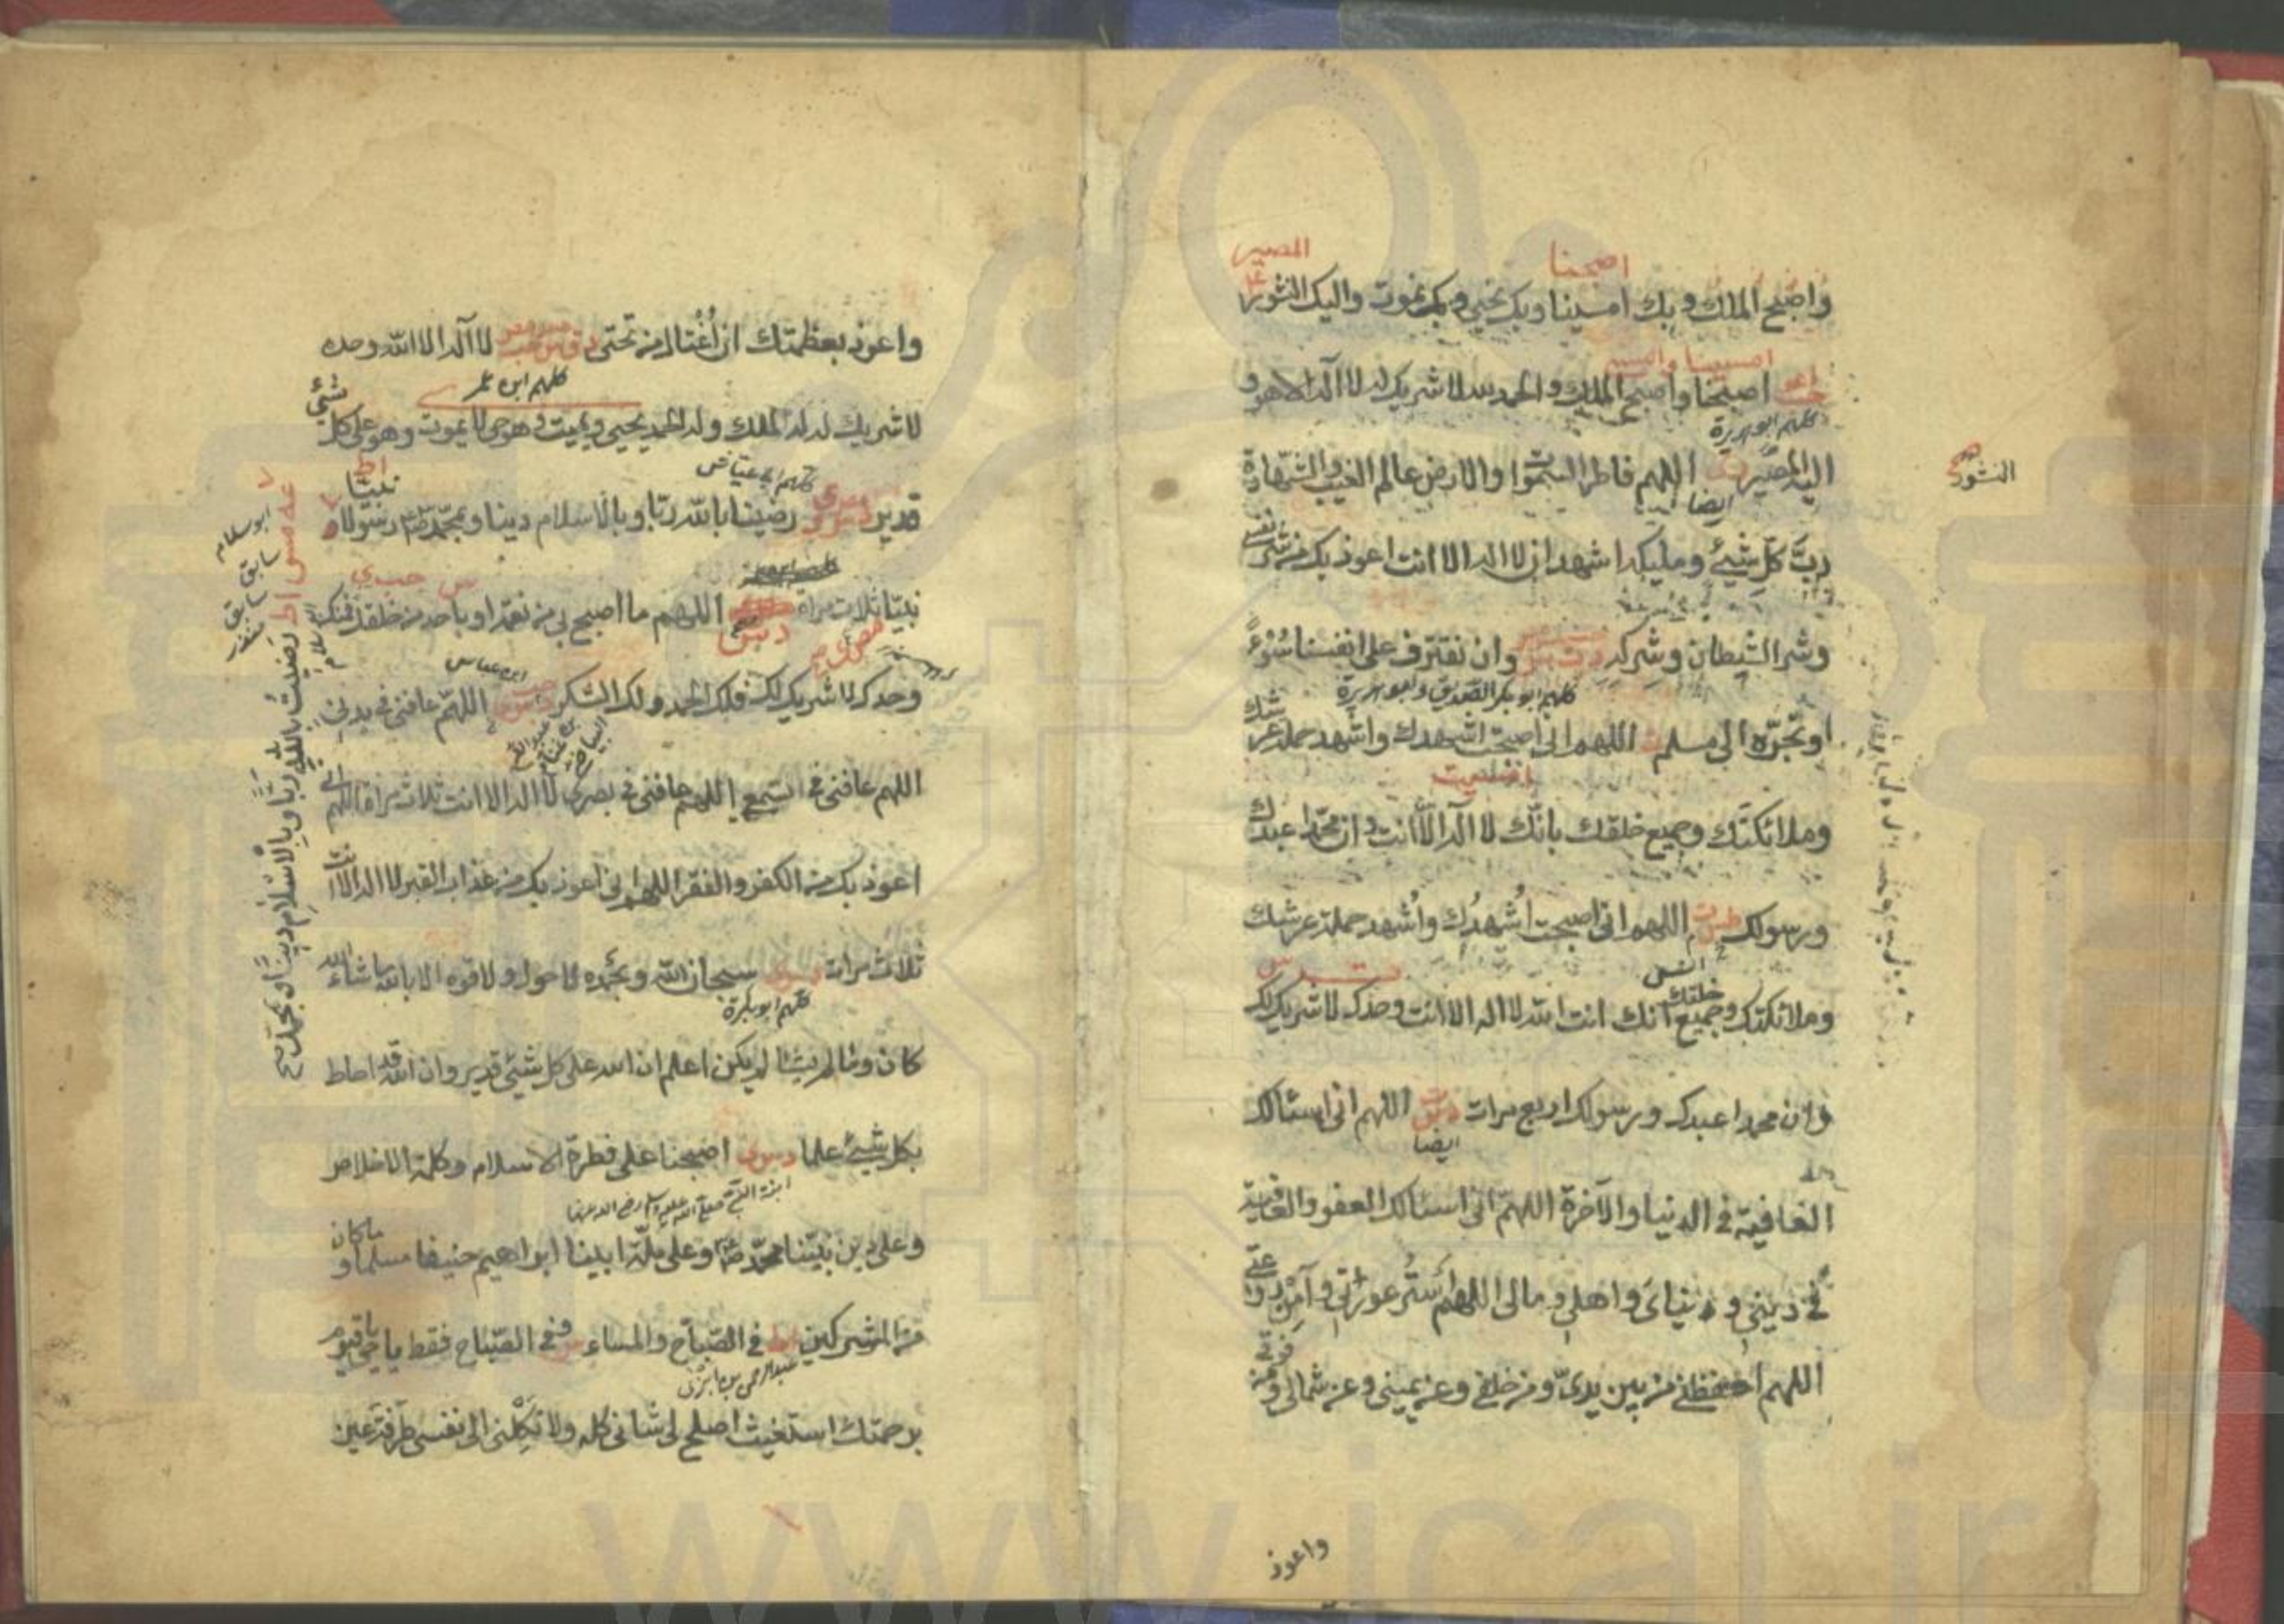 المصير
اصبحنا
واصبح الملك وبك امسينا وبك نحيي وبك نموت واليك النشور
امسينا وامسى
اصبحنا واصبح الملك والحمد لله لا شريك له لا اله الا هو و
كلهم ابو هريرة
اليه المصير اللهم فاطر السموات والارض عالم الغيب والشهادة
النشور
ايضا
رب كل شيئ ومليكه اشهد ان لا اله الا انت اعوذ بك من شر نفسي
وشر الشيطان وشركه وان نقترف على انفسنا سوءً
كلهم ابو بكر الصديق وابو هريرة
او نجره الى مسلم اللهم اني اصبحت اشهدك واشهد حملة عرشك
امسيت
وملائكتك وجميع خلقك بانك لا اله الا انت وان محمدا عبدك
ورسولك اللهم اني اصبحت اُشهدُك واُشهد حملة عرشك
انس
وملائكتك وجميع خلقك انك انت الله لا اله الا انت وحدك لا شريك لك
وان محمدا عبدك ورسولك اربع مرات اللهم اني اسئالك
ايضا
العافية في الدنيا والآخرة اللهم اني اسئالك العفو والعافية
في ديني ودنياي واهلي ومالي اللهم استر عوراتي وآمن روعاتي
اللهم احفظني من بين يديّ ومن خلفي وعن يميني وعن شمالي ومن فوقي
واعوذ
واعوذ بعظمتك ان اُغتال من تحتي لا اله الا الله وحده
كلهم ابن عمر
لا شريك له له الملك وله الحمد يحيي ويميت وهو حي لا يموت وهو على كل شيئ
كلهم ابي عياش
قدير رضينا بالله ربا وبالاسلام دينا وبمحمد رسولا و
نبيا
نبيّا ثلاث مرات اللهم ما اصبح بي من نعمة او باحد من خلقك فمنك
ابن عباس
وحدك لا شريك لك فلك الحمد ولك الشكر اللهم عافني في بدني
عبد الله بن غنام البياضي
اللهم عافني في السمعي اللهم عافني في بصري لا اله الا انت ثلاث مرات اللهم اني
اعوذ بك من الكفر والفقر اللهم اني اعوذ بك من عذاب القبر لا اله الا انت
ثلاث مرات سبحان الله وبحمده لا حول ولا قوه الا بالله ما شاء الله
كلهم ابو بكرة
كان وما لم يشا لم يكن اعلم ان الله على كل شيئ قدير وان الله قد احاط
بكل شيئ علما اصبحنا على فطرة الاسلام وكلمة الاخلاص
ابنة النبي صلى الله عليه وسلم رضي الله عنها
وعلى دين نبيّنا محمد وعلى ملّة ابينا ابراهيم حنيفا مسلما وما كان
من المشركين في الصباح والمساء وفي الصباح فقط يا حي يا قيوم
عبد الرحمن بن ابزى
برحمتك استغيث اصلح لي شاني كله ولا تكلني الى نفسي طرفة عين
ابو سلام
سابق
رَضيتُ بالله ربًّا وبالاسلام دينًا وبمحمد
www.ical.ir